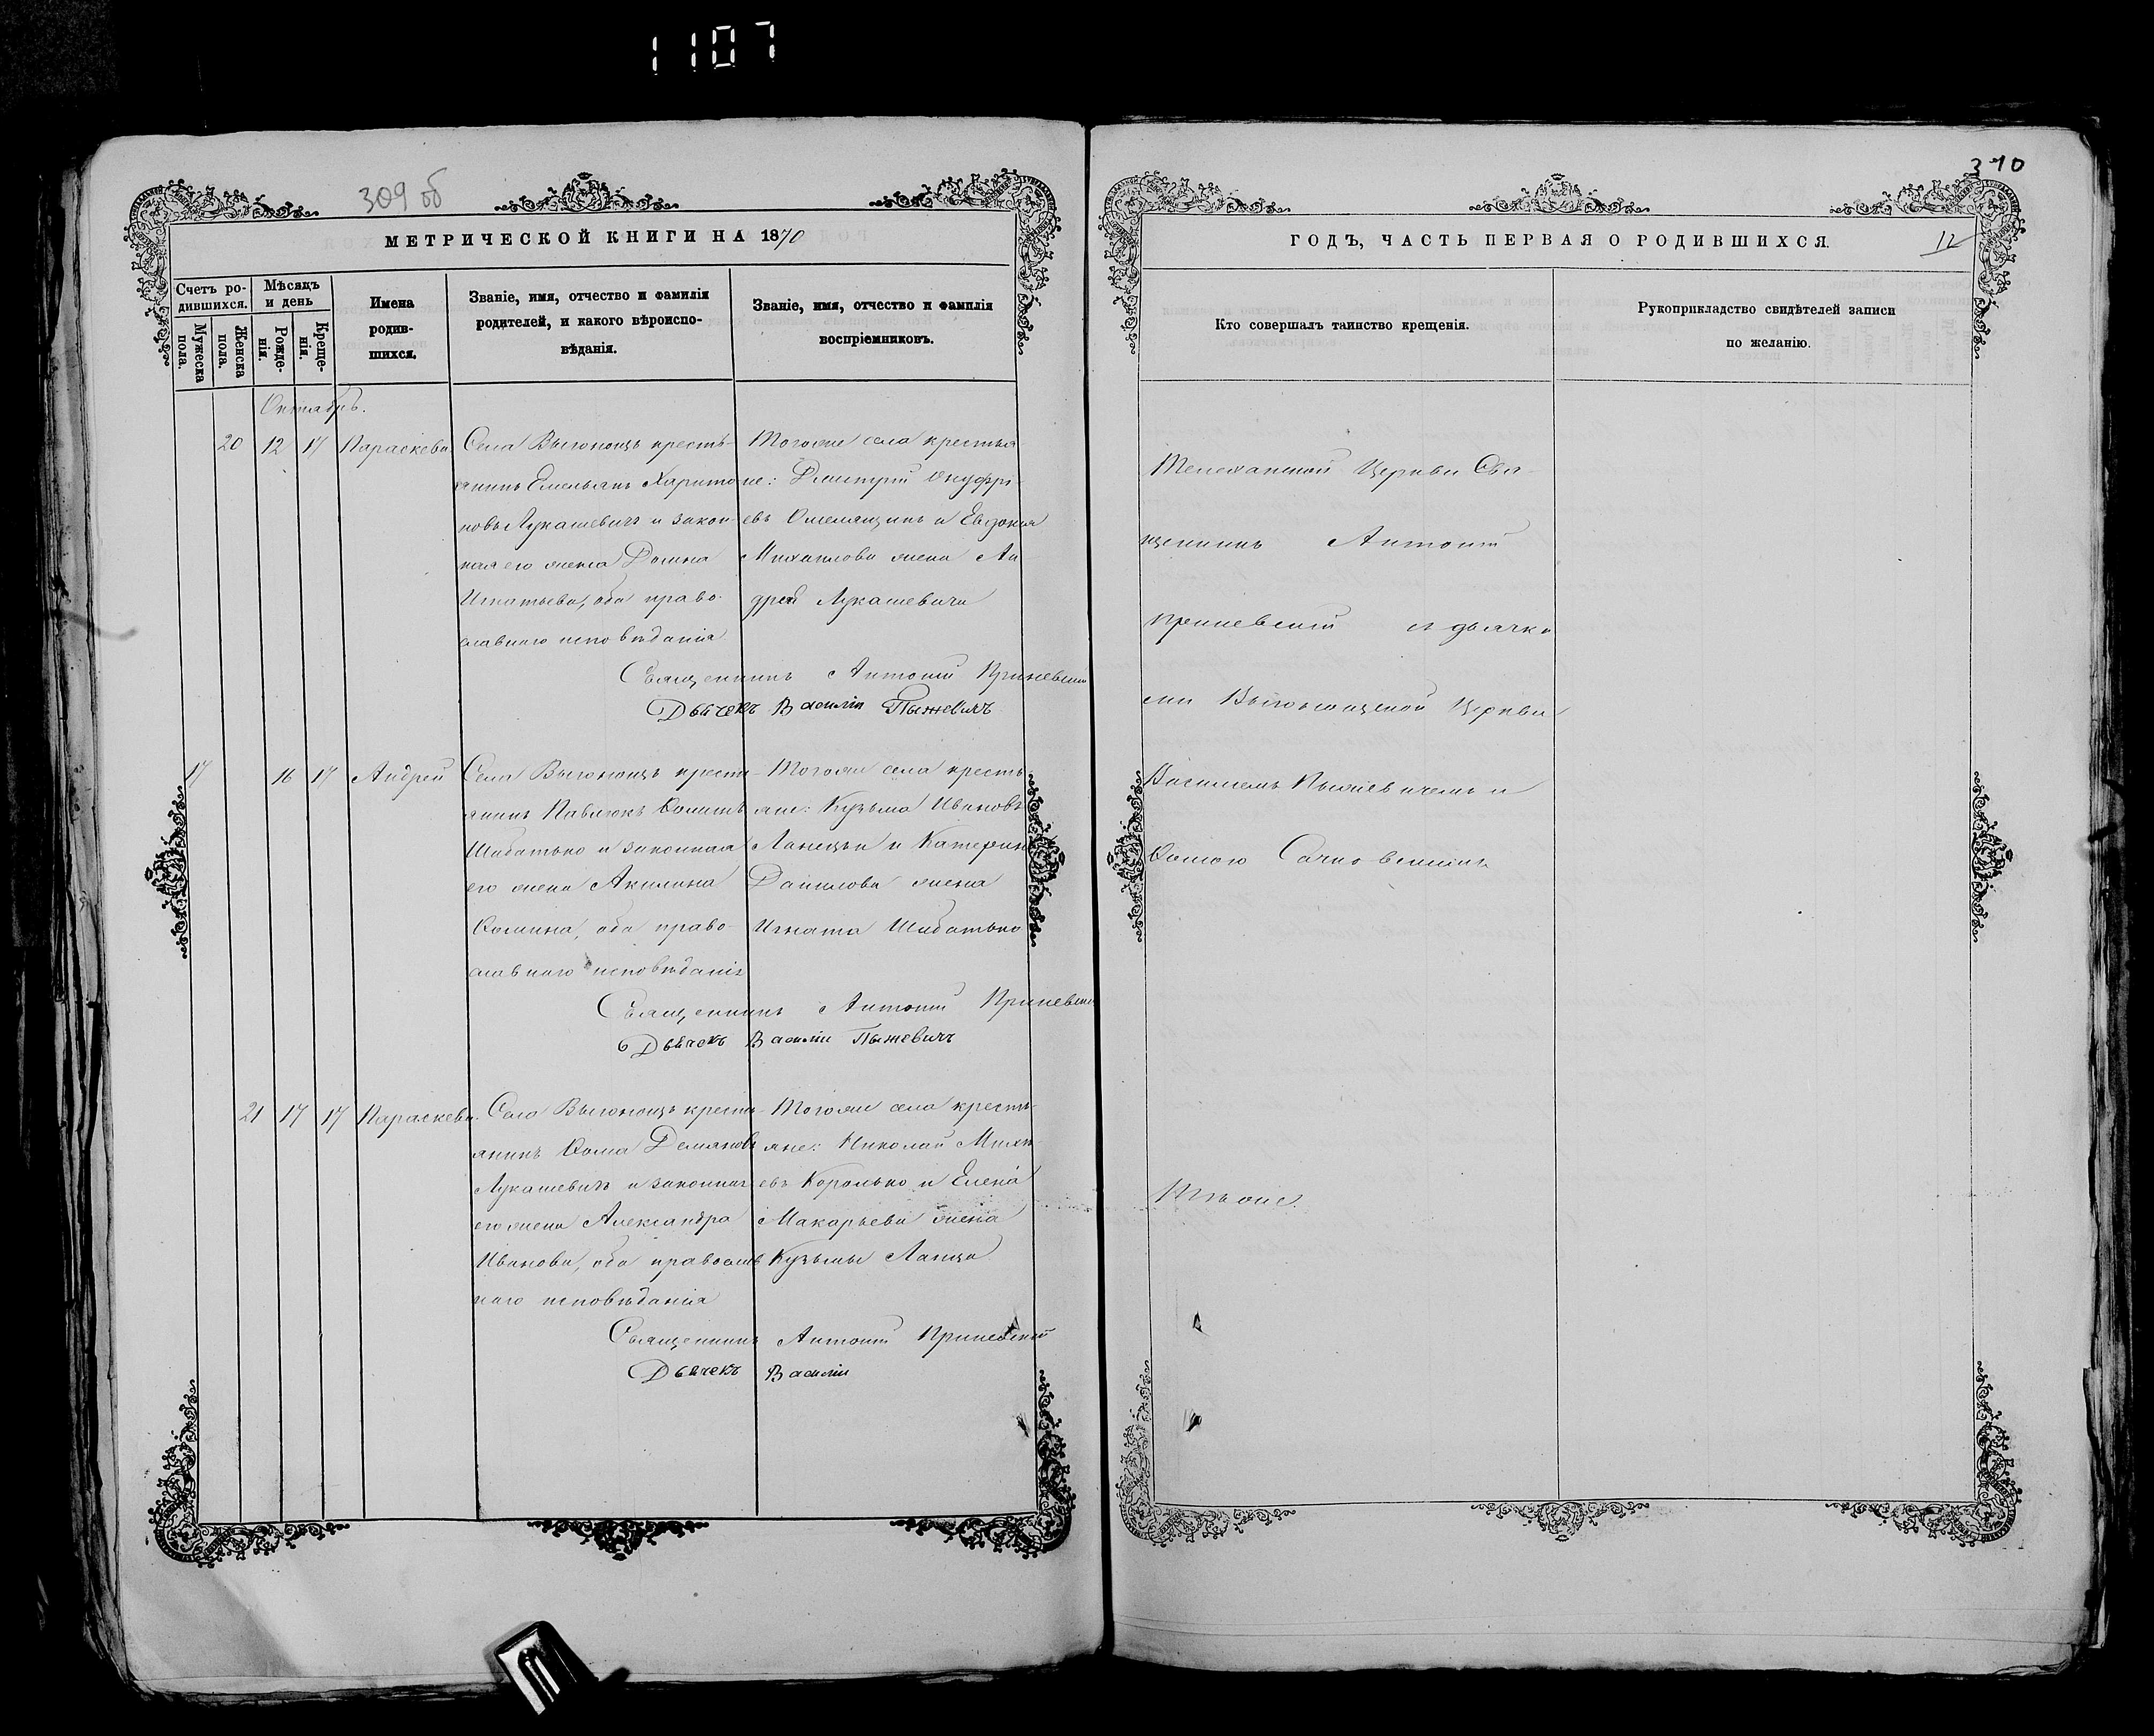 1107
309 об
МЕТРИЧЕСКОЙ КНИГИ НА 1870
Счетъ ро-
дившихся.
Мужеска пола.
Женска пола.
Мѣсяцъ
и день
Рожде-
нія.
Креще-
нія.
Имена
родив-
шихся.
Званіе, имя, отчество и фамилія
родителей, и какого вѣроиспо-
вѣданія.
Званіе, имя, отчество и фамилія
воспріемниковъ.
Октябрь.
20 12 17 Параскева
Села Выгонощъ кресть-
янинъ Емельянъ Харито
новъ Лукашевичъ и закон-
ная его жена Домна
Игнатьева, оба право-
славнаго исповѣданія
Тогоже села крестья
не: Дмитрій Онуфрі-
евъ Омелянцикъ и Евдокия
Михаилова жена Ан
дрея Лукашевича
Священникъ Антоній Криневскій
Дьячекъ Василій Пыжевичъ
17 16 17 Андрей
Села Выгонощъ кресть-
янинъ Павлюкъ Фоминъ
Шабатько и законная
его жена Акилина
Фомина, оба право-
славнаго исповѣданія
Тогоже села кресть-
яне: Кузьма Ивановъ
Ланецъ и Катерина
Данилова жена
Игната Шабатько
Священникъ Антоній Криневскій
Дьячекъ Василій Пыжевичъ
21 17 17 Параскева.
Села Выгонощъ кресть-
янинъ Фома Демяновъ
Лукашевичъ и законная
его жена Александра
Иванова, оба православ
наго исповѣданія
Тогоже села кресть-
яне: Николай Михе
евъ Королько и Елена
Макарьева жена
Кузьмы Ланца
Священникъ Антоній Криневскій
Дьячекъ Василій
310
ГОДЪ, ЧАСТЬ ПЕРВАЯ О РОДИВШИХСЯ.
12
Кто совершалъ таинство крещенія.
Рукоприкладство свидѣтелей записи
по желанію.
Телеханской Церкви Свя-
щенникъ Антоній
Криневскій съ дьячка
ми Выгонощской Церкви
Василіемъ Пыжевичемъ и
Фомою Сачковскимъ
Тѣ оне.